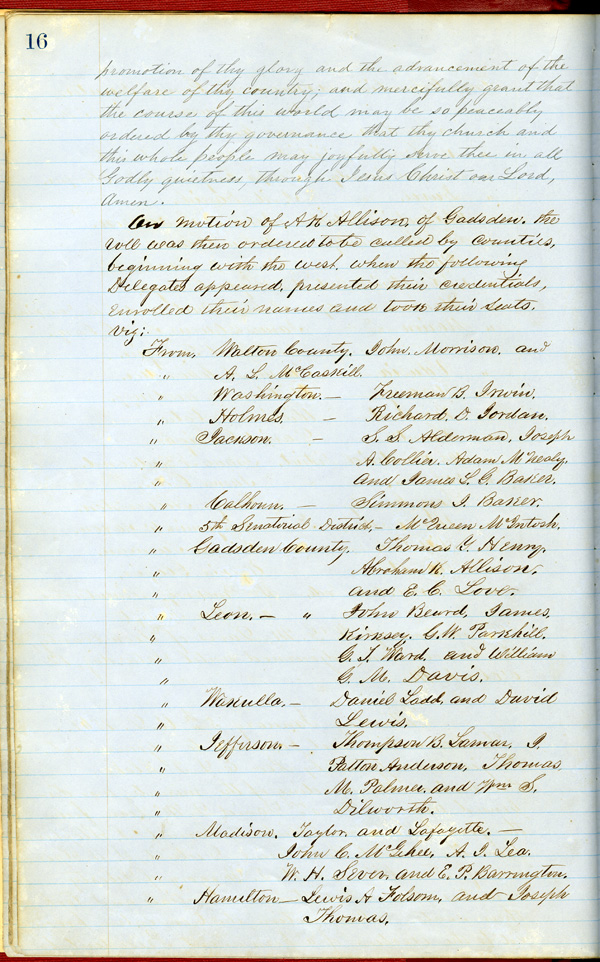 16
promotion of thy glory and the advancement of the
welfare of thy country; and mercifully grant that
the course of this world may be so peaceably
ordered by thy governance that thy church and
this whole people may joyfully serve thee in all
Godly quietness, through Jesus Christ our Lord,
Amen.
On motion of A K Allison, of Gadsden. the
roll was then ordered to be called by counties,
beginning with the west. when the following
Delegates appeared, presented their credentials,
enrolled their names and took their seats.
viz:
From, Walton County. John. Morrison. and
" A. L. McCaskill.
" Washington.— Freeman B. Irwin.
" Holmes. — Richard. D. Jordan.
" Jackson. — S. S. Alderman. Joseph
" A. Collier. Adam McNealy.
" and James L. G. Baker.
" Calhoun. — Simmons J. Baker.
" 5th Senatorial District.— McQueen McIntosh.
" Gadsden County. Thomas Y. Henry.
" Abraham K. Allison,
" and E. C. Love.
" Leon. — " John Beard, James.
" Kirksey. G. W. Parkhill.
" G. T. Ward. and William
" G. M. Davis.
" Wakulla. — Daniel Ladd, and David
" Lewis.
" Jefferson. — Thompson B. Lamar. J.
" Patton Anderson, Thomas
" M. Palmer. and Wm S.
" Dilworth.
" Madison. Taylor. and Lafayette. —
" John C. McGehee, A. J. Lea.
" W. H. Sever. and E. P. Barrington.
" Hamilton — Lewis A Folsom, and Joseph
Thomas.